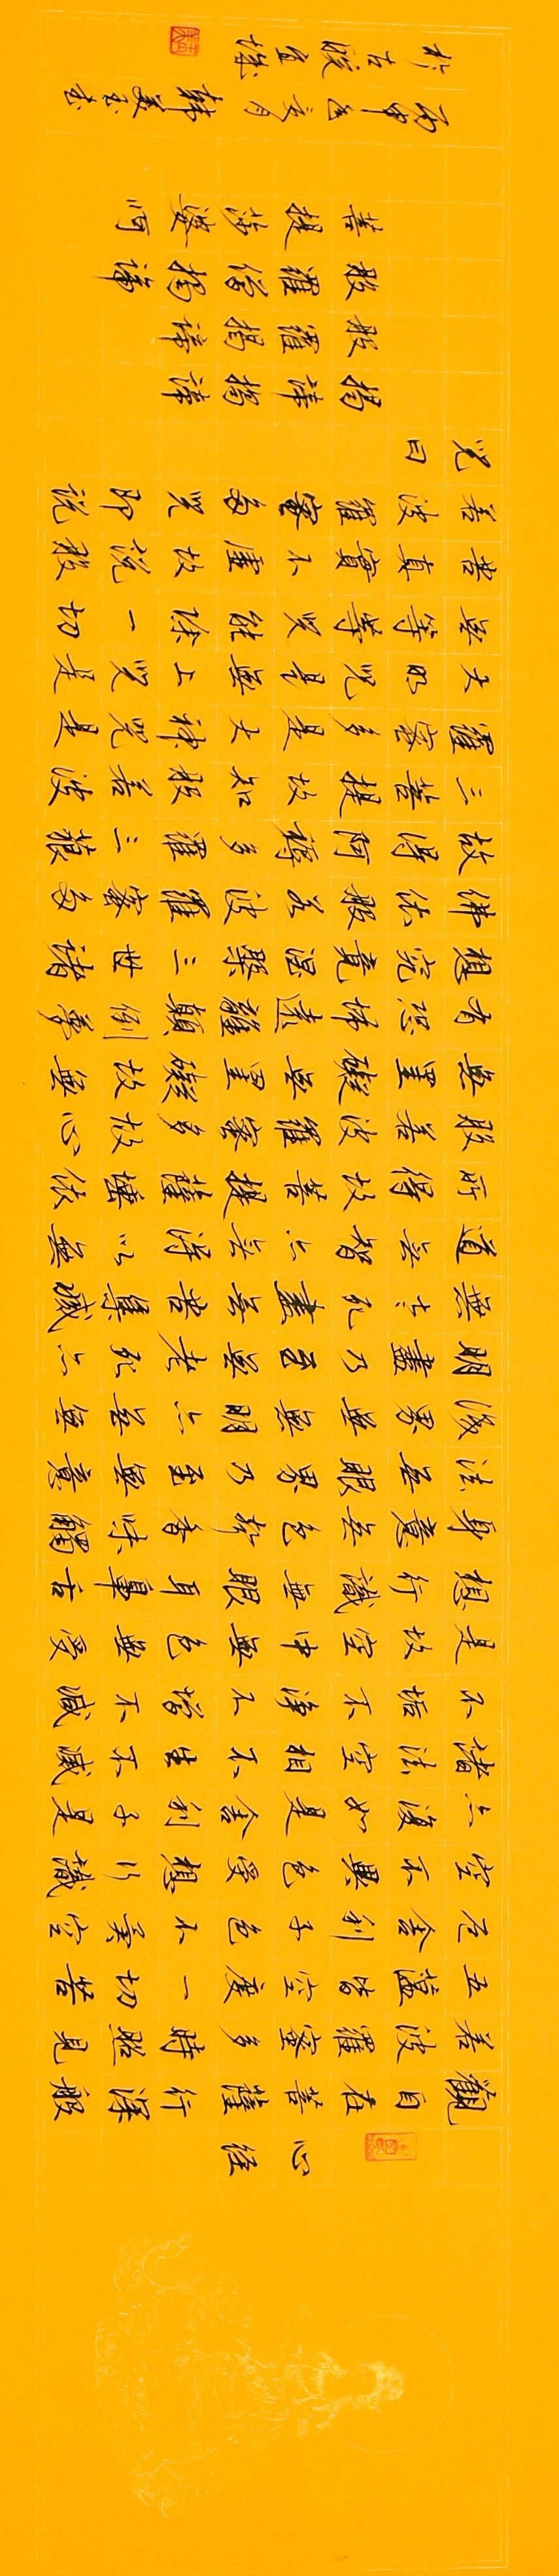 心經
觀自在菩薩行深般
若波羅蜜多時照見
五蘊皆空度一切苦
厄舍利子色不異空
空不異色受想行識
亦復如是舍利子是
諸法空相不生不滅
不垢不淨不增不減
是故空中無色無受
想行識無眼耳鼻舌
身意無色聲香味觸
法無眼界乃至無意
識界無無明亦無無
明盡乃至無老死亦
無老死盡無苦集滅
道無智亦無得以無
所得故菩提薩埵依
般若波羅蜜多故心
無罣礙無罣礙故無
有恐怖遠離顛倒夢
想究竟涅槃三世諸
佛依般若波羅蜜多
故得阿耨多羅三藐
三菩提故知般若波
羅蜜多是大神咒是
大明咒是無上咒是
無等等咒能除一切
苦真實不虛故說般
若波羅蜜多咒即說
咒曰
揭諦揭諦
般羅揭諦
般羅僧揭諦
菩提莎婆呵
丙申 月韓美玉書
於古 宜城